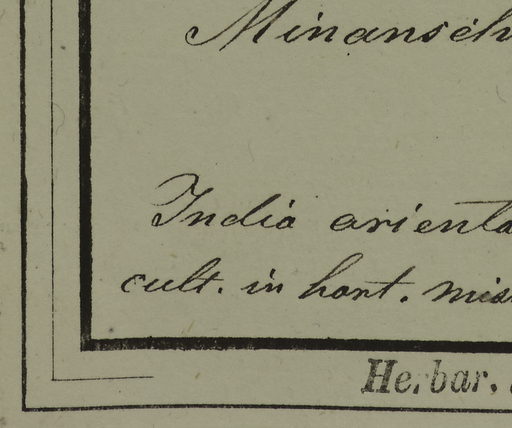 Minanséh
India orienta
cult. in hort. miss
Herbar.